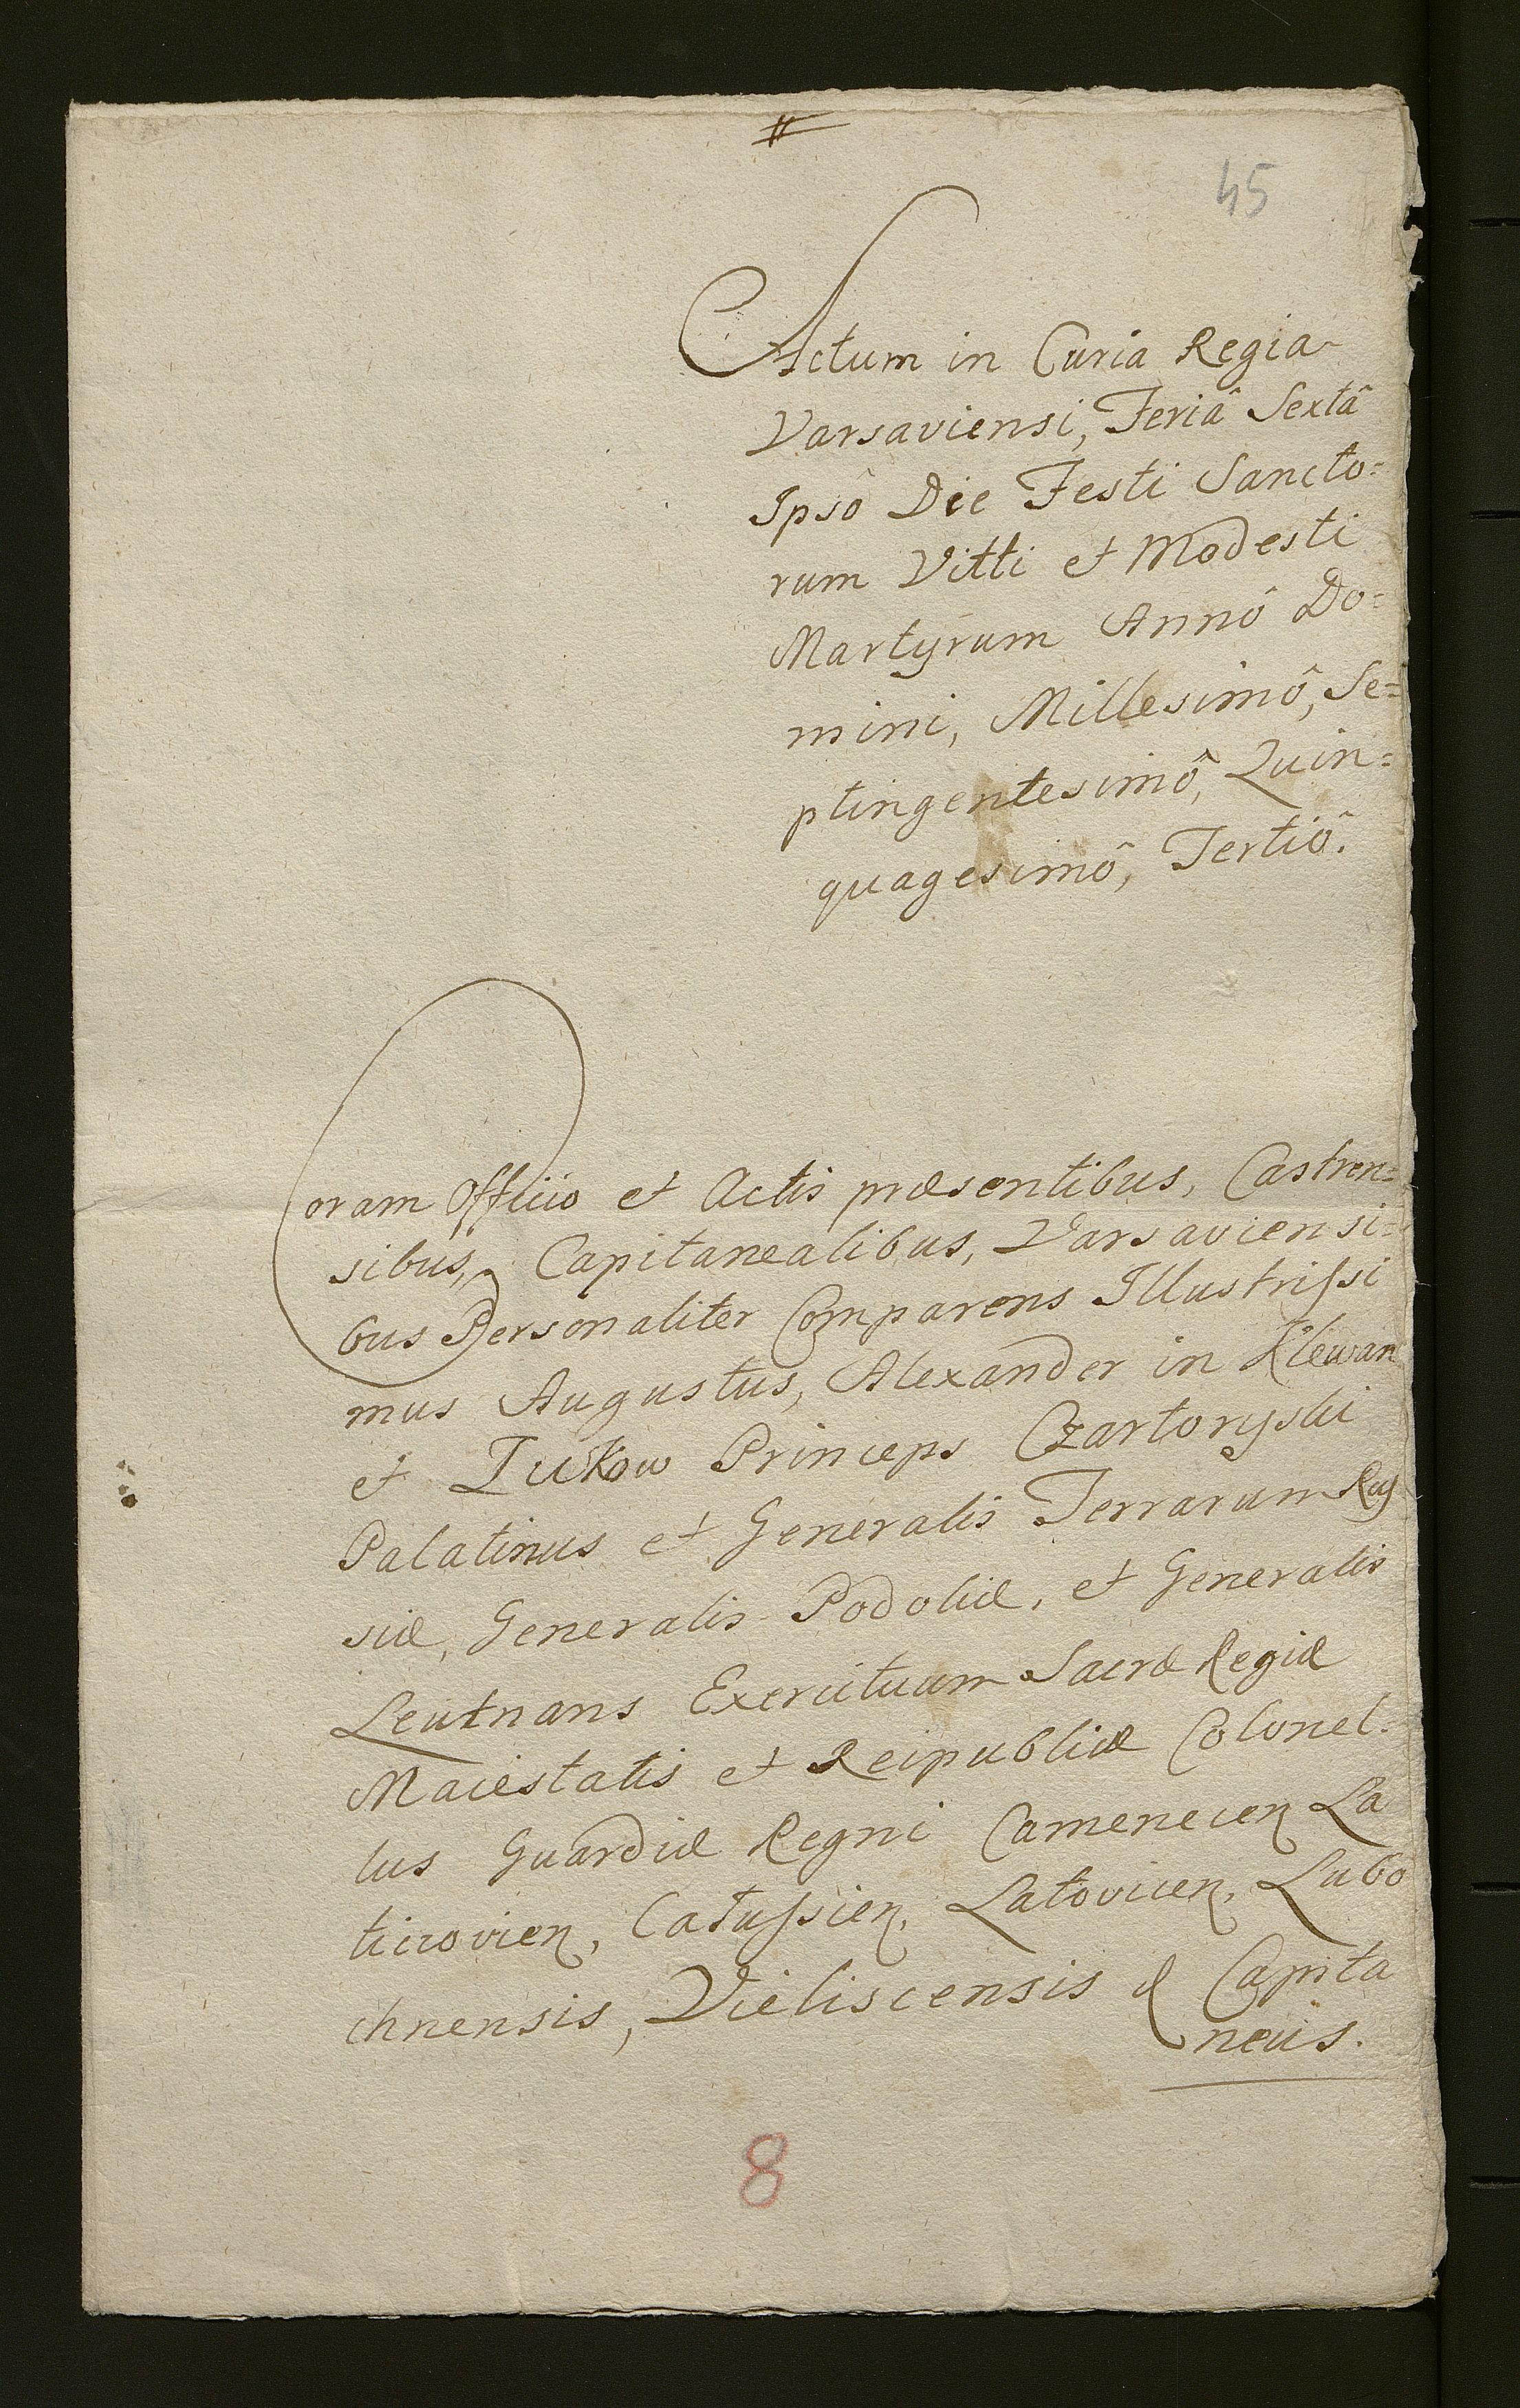 #
45
Actum in Curia Regia
Varsaviensi, Feriâ Sextâ
Ipsô Die Festi Sancto=
rum Vitti et Modesti
Martyrum Annô Do=
mini, Millesimô, Se=
ptingentesimô, Quin=
quagesimô, Tertiô.
Coram Officio et Actis præsentibus, Castren=
sibus, Capitanealibus, Varsaviensi=
bus Personaliter Comparens Illustrissi
mus Augustus, Alexander in Klewan
et Zukow Princeps Czartoryski
Palatinus et Generalis Terrarum Rus
siæ, Generalis Podoliæ, et Generalis
Leutnans Exercituum Sacræ Regiæ
Maiestatis et Reipublicæ Colonel-
lus Guardiæ Regni Camenecen La
ticzovien, Catussien, Latovicen, Lubo
chnensis, Vieliscensis & Capita
neus.
8